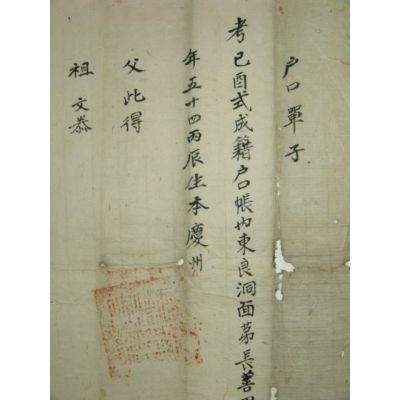 戶口單子
考己酉式成籍戶口帳內東良洞面第長善
年五十四丙辰生本慶州
父此得
祖文恭